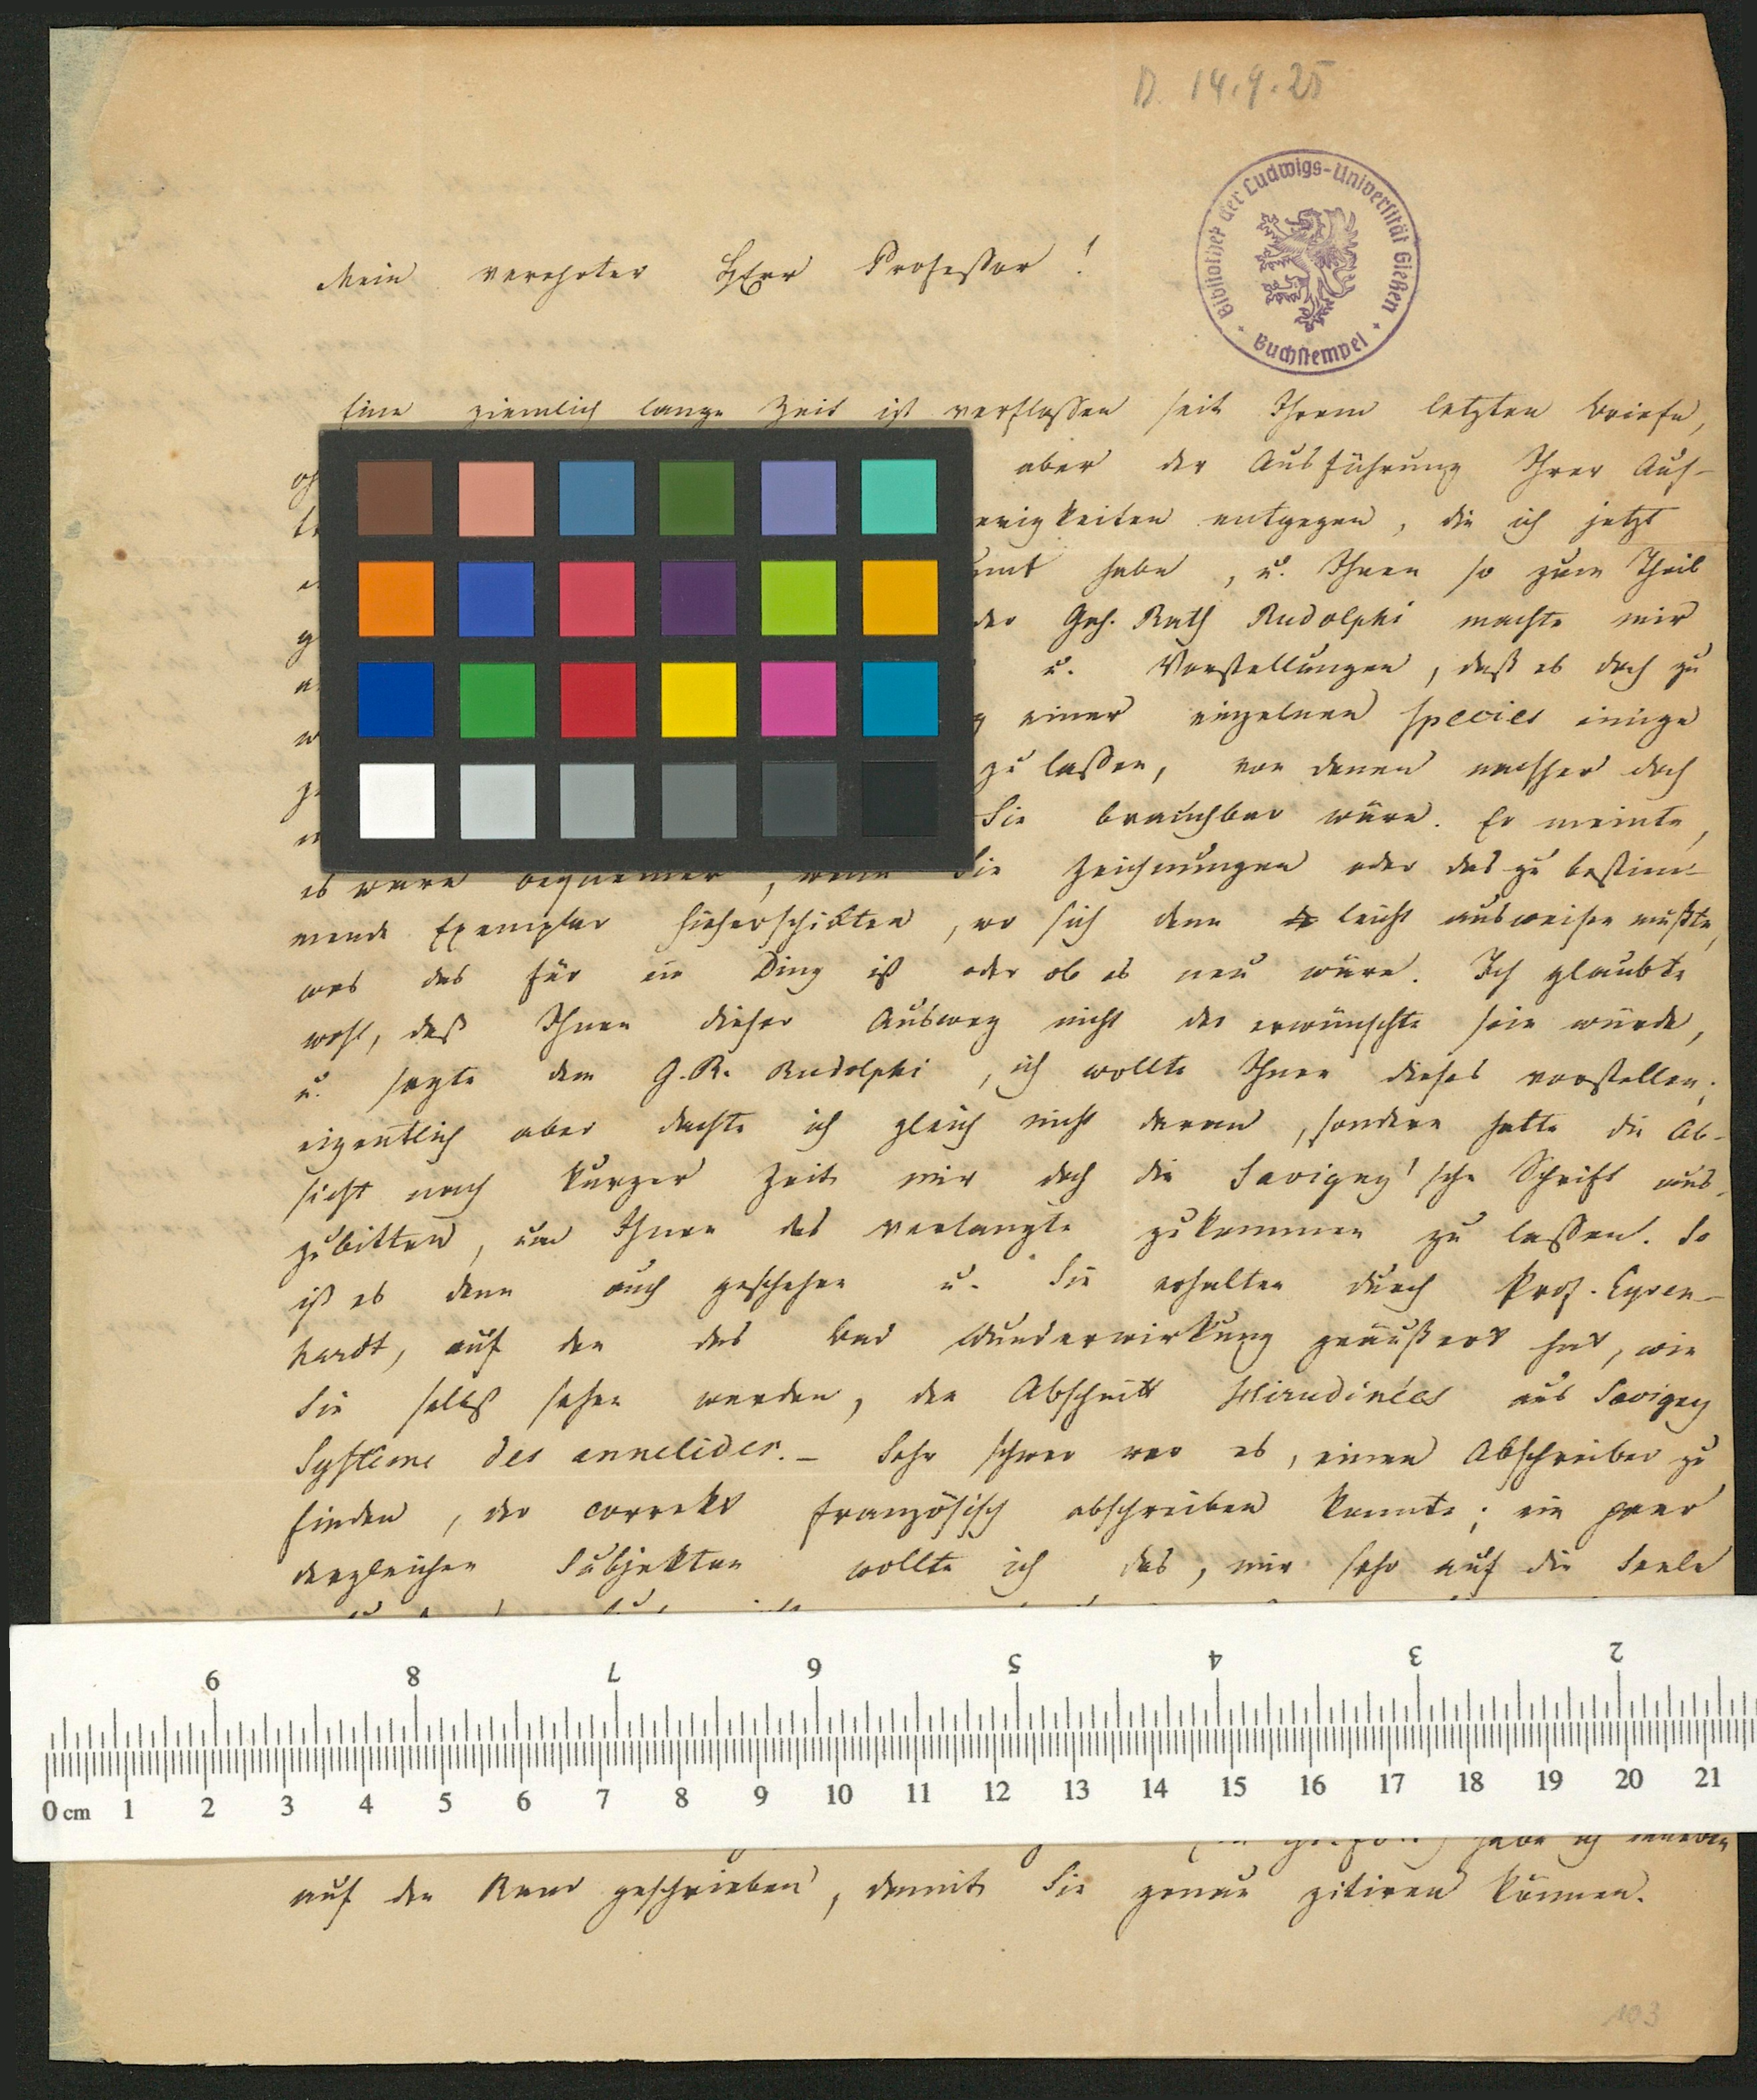 D. 14.9.25
Bibliothek der Ludwigs-Universität Gießen
Buchstempel
Mein verehrter Herr Professor!
Eine ziemlich lange Zeit ist verflossen seit Ihrem letzten Briefe,
aber der Ausführung Ihrer Auf-
erigkeiten entgegen, die ich jetzt
habe, u. Ihnen so zum Theil
der Geh. Rath Rudolphi machte mir
u. Vorstellungen, daß es doch zu
einer einzelnen species einige
zu lassen, von denen nachher doch
Sie brauchbar wäre. Er meinte,
es wäre bequemer, wenn Sie Zeichnungen oder das zu bestim-
mende Exemplar hieherschickten, wo sich denn leicht ausweisen müßte,
was das für ein Ding ist oder ob es neu wäre. Ich glaubte
wohl, daß Ihnen dieser Ausweg nicht der erwünschte sein würde,
u. sagte dem G. R. Rudolphi, ich wollte Ihnen dieses vorstellen;
eigentlich aber dachte ich gleich nicht daran, sondern hatte die Ab-
sicht nach kurzer Zeit mir doch die Savigny'sche Schrift aus-
zubitten, um Ihnen das verlangte zukommen zu lassen. So
ist es denn auch geschehen u. Sie erhalten durch Prof. Eysen-
hardt, auf den das Bad Wunderwirkung geäußert hat, wie
Sie selbst sehen werden, den Abschnitt Hirudinées aus Savigny
Systême des annelides. – Sehr schwer war es, einen Abschreiber zu
finden, der correkt französisch abschreiben konnte; ein paar
dergleichen Subjekten wollte ich das, mir sehr auf die Seele
9 8 7 6 5 4 3 2
0 cm 1 2 3 4 5 6 7 8 9 10 11 12 13 14 15 16 17 18 19 20 21
habe ich
auf den Rand geschrieben, damit Sie genau zitiren können.
103